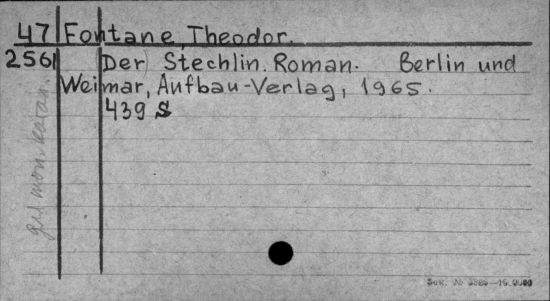 47 Fontane, Theodor.
2561 Der Stechlin. Roman. Berlin und
Weimar, Aufbau-Verlag, 1965.
439 S